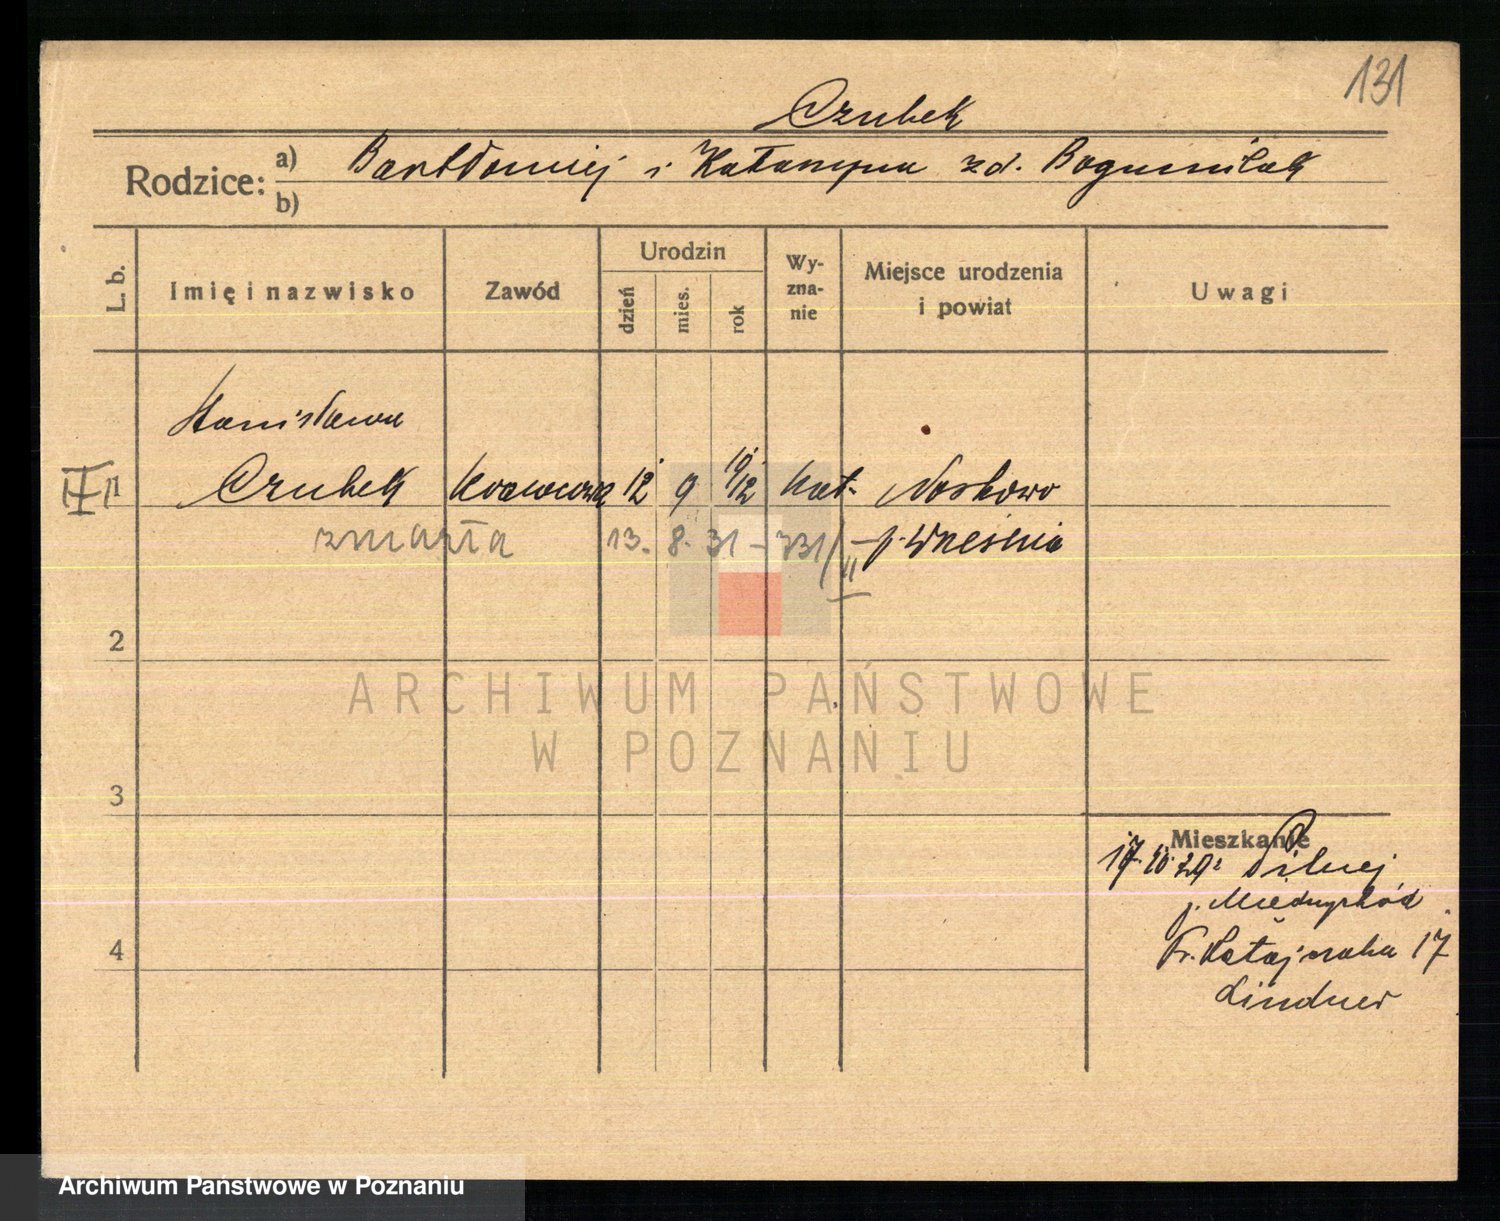 131
Czubek
Rodzice: a) Bartłomiej i Katarzyna zd. Bogumilak
b)
L. b. Imię i nazwisko Zawód Urodzin dzień mies. rok Wyznanie Miejsce urodzenia i powiat Uwagi
Stanisława
Czubek Krawcowa 12 9 1912 kat. Noskowo
zmarła 13. 8. 31 – 331/II – p. Września
2
ARCHIWUM PAŃSTWOWE
W POZNANIU
3
Mieszkanie
17. 10. 29 z
p. Międzychód
Fr. Ratajczaka 17
Lindner
4
Archiwum Państwowe w Poznaniu